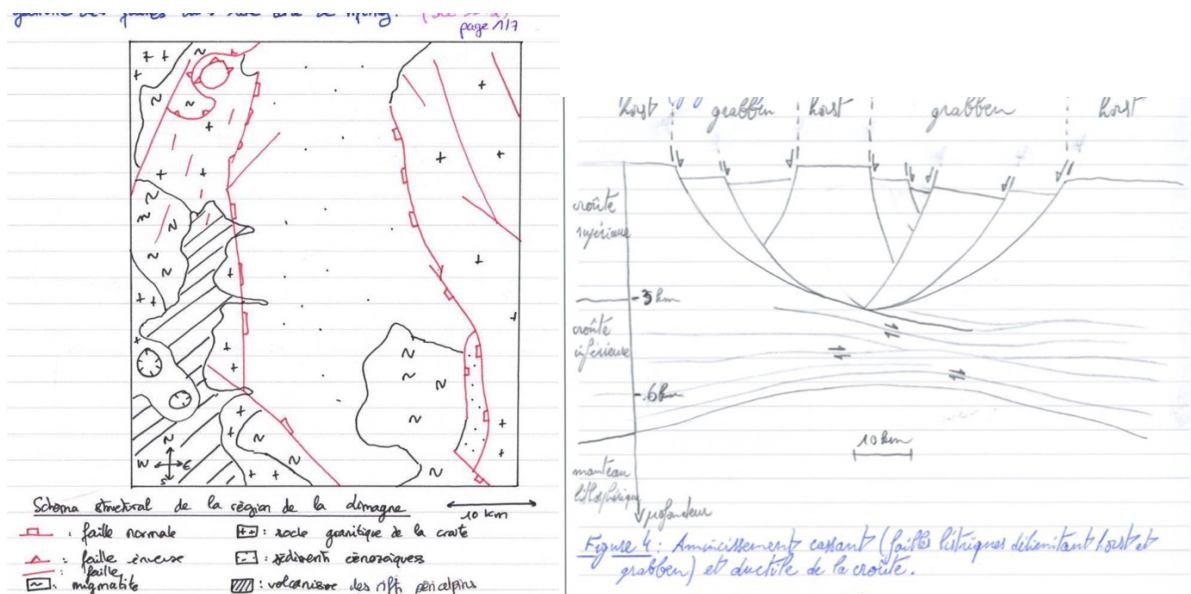 page 1/7
N
W E
S
Schéma structural de la région de la limagne
10 km
: faille normale
: faille inverse
: faille
: migmatite
: socle granitique de la croute
: sédiments cénozoïques
: volcanisme des rifts péri alpins
horst grabben horst grabben horst
croûte
supérieure
-3 km
croûte
inférieure
-6 km
10 km
manteau
lithosphérique
profondeur
Figure 4 : Amincissement cassant (failles listriques délimitant horst et
grabben) et ductile de la croûte.